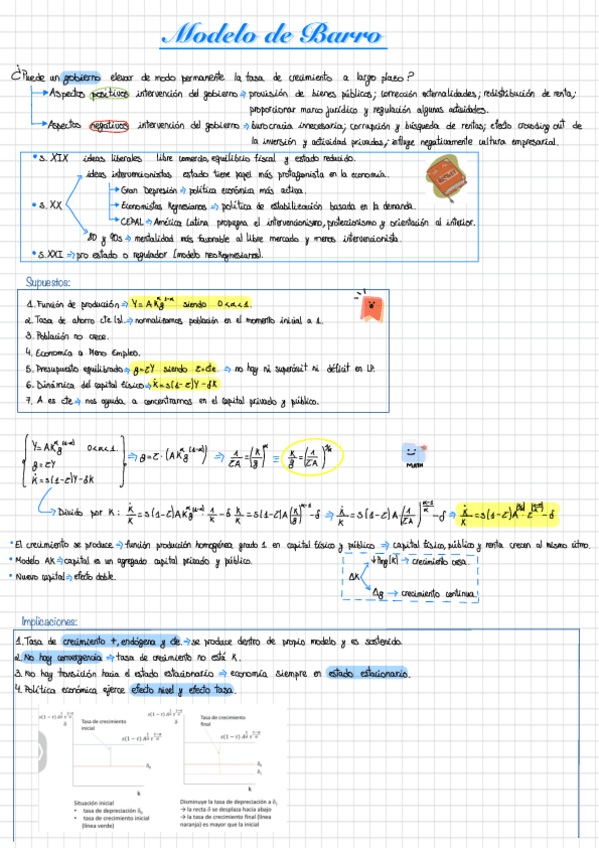 Modelo de Barro
¿Puede un gobierno elevar de modo permanente la tasa de crecimiento a largo plazo?
→ Aspectos positivos intervención del gobierno → provisión de bienes públicos; corrección externalidades; redistribución de renta;
proporcionar marco jurídico y regulación algunas actividades.
→ Aspectos negativos intervención del gobierno → burocracia innecesaria; corrupción y búsqueda de rentas; efecto crowding out de
la inversión y actividad privadas; influye negativamente cultura empresarial.
• S. XIX ideas liberales libre comercio, equilibrio fiscal y estado reducido.
ideas intervencionistas estado tiene papel más protagonista en la economía.
→ Gran Depresión → política económica más activa.
• S. XX → Economistas Keynesianos → política de estabilización basada en la demanda.
→ CEPAL → América Latina propugna el intervencionismo, proteccionismo y orientación al interior.
80 y 90s → mentalidad más favorable al libre mercado y menos intervencionista.
• S. XXI → pro estado o regulador (modelo neoKeynesiano).
Supuestos:
1. Función de producción → Y = AK^α g^(1-α) siendo 0<α<1.
2. Tasa de ahorro cte (s). → normalizamos población en el momento inicial a 1.
3. Población no crece.
4. Economía a Pleno Empleo.
5. Presupuesto equilibrado → g=τY siendo τ=cte. → no hay ni superávit ni déficit en LP.
6. Dinámica del capital físico → K̇ = s(1-τ)Y-δK
7. A es cte → nos ayuda a concentrarnos en el capital privado y público.
Y=AKg^α(1-α) 0<α<1.
g=τY
K̇ = s(1-τ)Y-δK
⇒ g=τ·(AKg^α(1-α)) ⇒ 1/τA = (K/g)^α ≡ K/g = (1/τA)^1/α
MATH
→ Divido por K: K̇/K = s(1-τ)AKg^α(1-α) · 1/K - δ K̇/K = s(1-τ)A(K/g)^α-1 - δ ⇒ K̇/K = s(1-τ)A(1/τA)^α-1/α - δ ⇒ K̇/K = s(1-τ)A^(1/α) · τ^(1-α/α) - δ
• El crecimiento se produce → función producción homogénea grado 1 en capital físico y público → capital físico, público y renta crecen al mismo ritmo.
• Modelo AK → capital es un agregado capital privado y público.
• Nuevo capital → efecto doble.
↓Pmg(K) → crecimiento cesa.
ΔK
Δg → crecimiento continua.
Implicaciones:
1. Tasa de crecimiento +, endógena y cte. → se produce dentro de propio modelo y es sostenido.
2. No hay convergencia → tasa de crecimiento no está K.
3. No hay transición hacia el estado estacionario → economía siempre en estado estacionario.
4. Política económica ejerce efecto nivel y efecto tasa.
s(1 − τ) A^1/α τ^1-α/α
δ
Tasa de crecimiento
inicial
s(1 − τ) A^1/α τ^1-α/α
δ₀
k
Situación inicial
• tasa de depreciación δ₀
• tasa de crecimiento inicial
(línea verde)
s(1 − τ) A^1/α τ^1-α/α
δ
Tasa de crecimiento
final
s(1 − τ) A^1/α τ^1-α/α
δ₀
δ₁
k
Disminuye la tasa de depreciación a δ₁
→ la recta δ se desplaza hacia abajo
→ la tasa de crecimiento final (línea
naranja) es mayor que la inicial